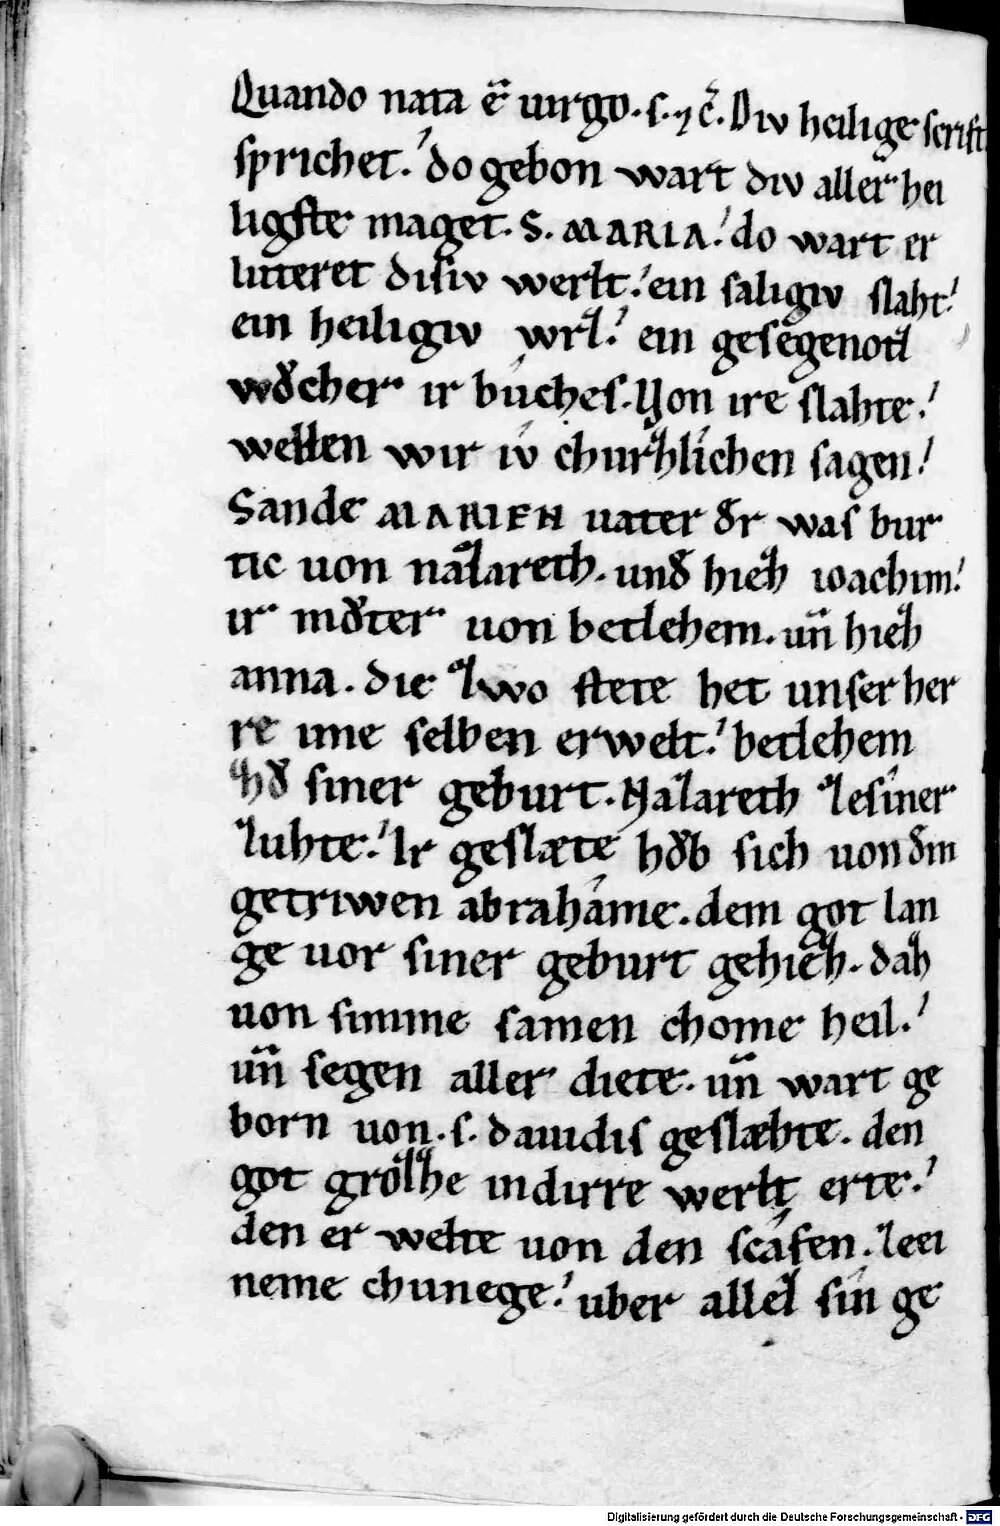 Quando nata ē uirgo. s. ⁊ c̄. Div heilige scrift
sprichet. do gebon wart div aller hei
ligste maget. S. MARIA. do wart er
luteret disiv werlt. ein saligiv slaht.
ein heiligiv wrz. ein gesegenotz
wͦcher ir buches. Von ire slahte.
wellen wir iv churzlichen sagen.
Sande MARIEN uater dͤr was bur
tic uon nazareth. und hiez ioachim.
ir mͦter uon betlehem. un̄ hiez
anna. die zwo stete het unser her
re ime selben erwelt. betlehem
zͦ siner geburt. Nazareth ze siner
zuhte. Ir geslæte hͦb sich uon dm
getriwen abrahame. dem got lan
ge uor siner geburt gehiez. daz
uon simme samen chome heil.
un̄ segen aller diete. un̄ wart ge
born uon. s. dauidis geslæhte. den
got grozze in dirre werlt erte.
den er welte uon den scafen. zeei
neme chunege. uber allez sin ge
Digitalisierung gefördert durch die Deutsche Forschungsgemeinschaft - DFG